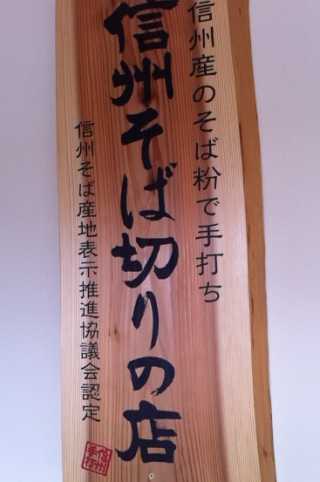 信州産のそば粉で手打ち
信州そば切りの店
信州そば産地表示推進協議会認定